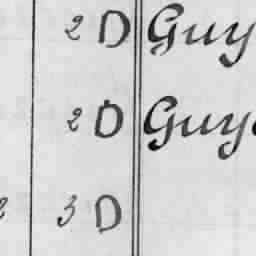 2 D Guy
2 D Guy
2 3 D